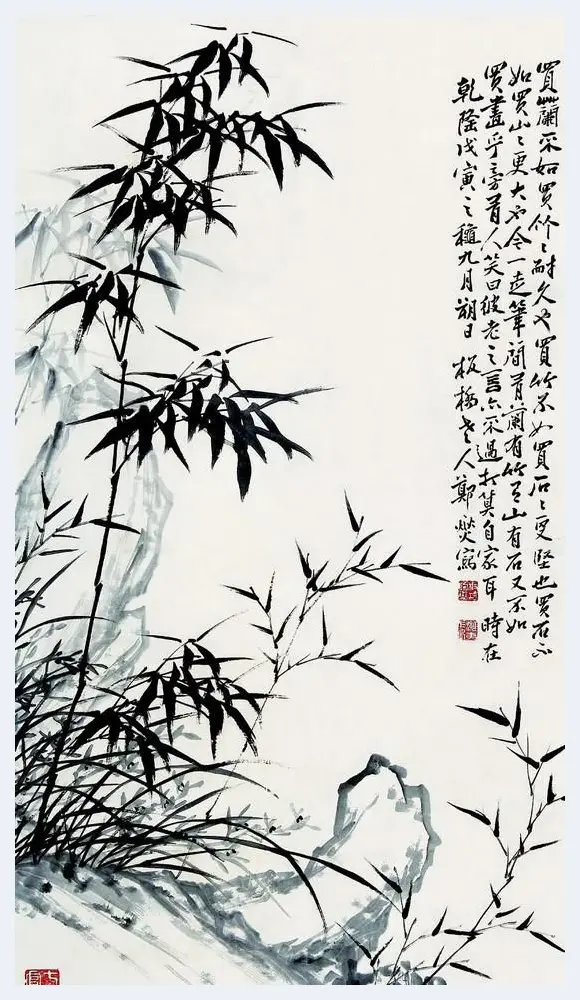 買蘭不如買竹〻耐久也買竹不如買石〻更堅也買石不
如買山〻更大也今一走筆間有蘭有竹有山有石又不如
買畫乎旁有人笑曰彼老之言亦不過打算自家耳 時在
乾隆戊寅之穐九月朔日 板橋老人鄭燮寫